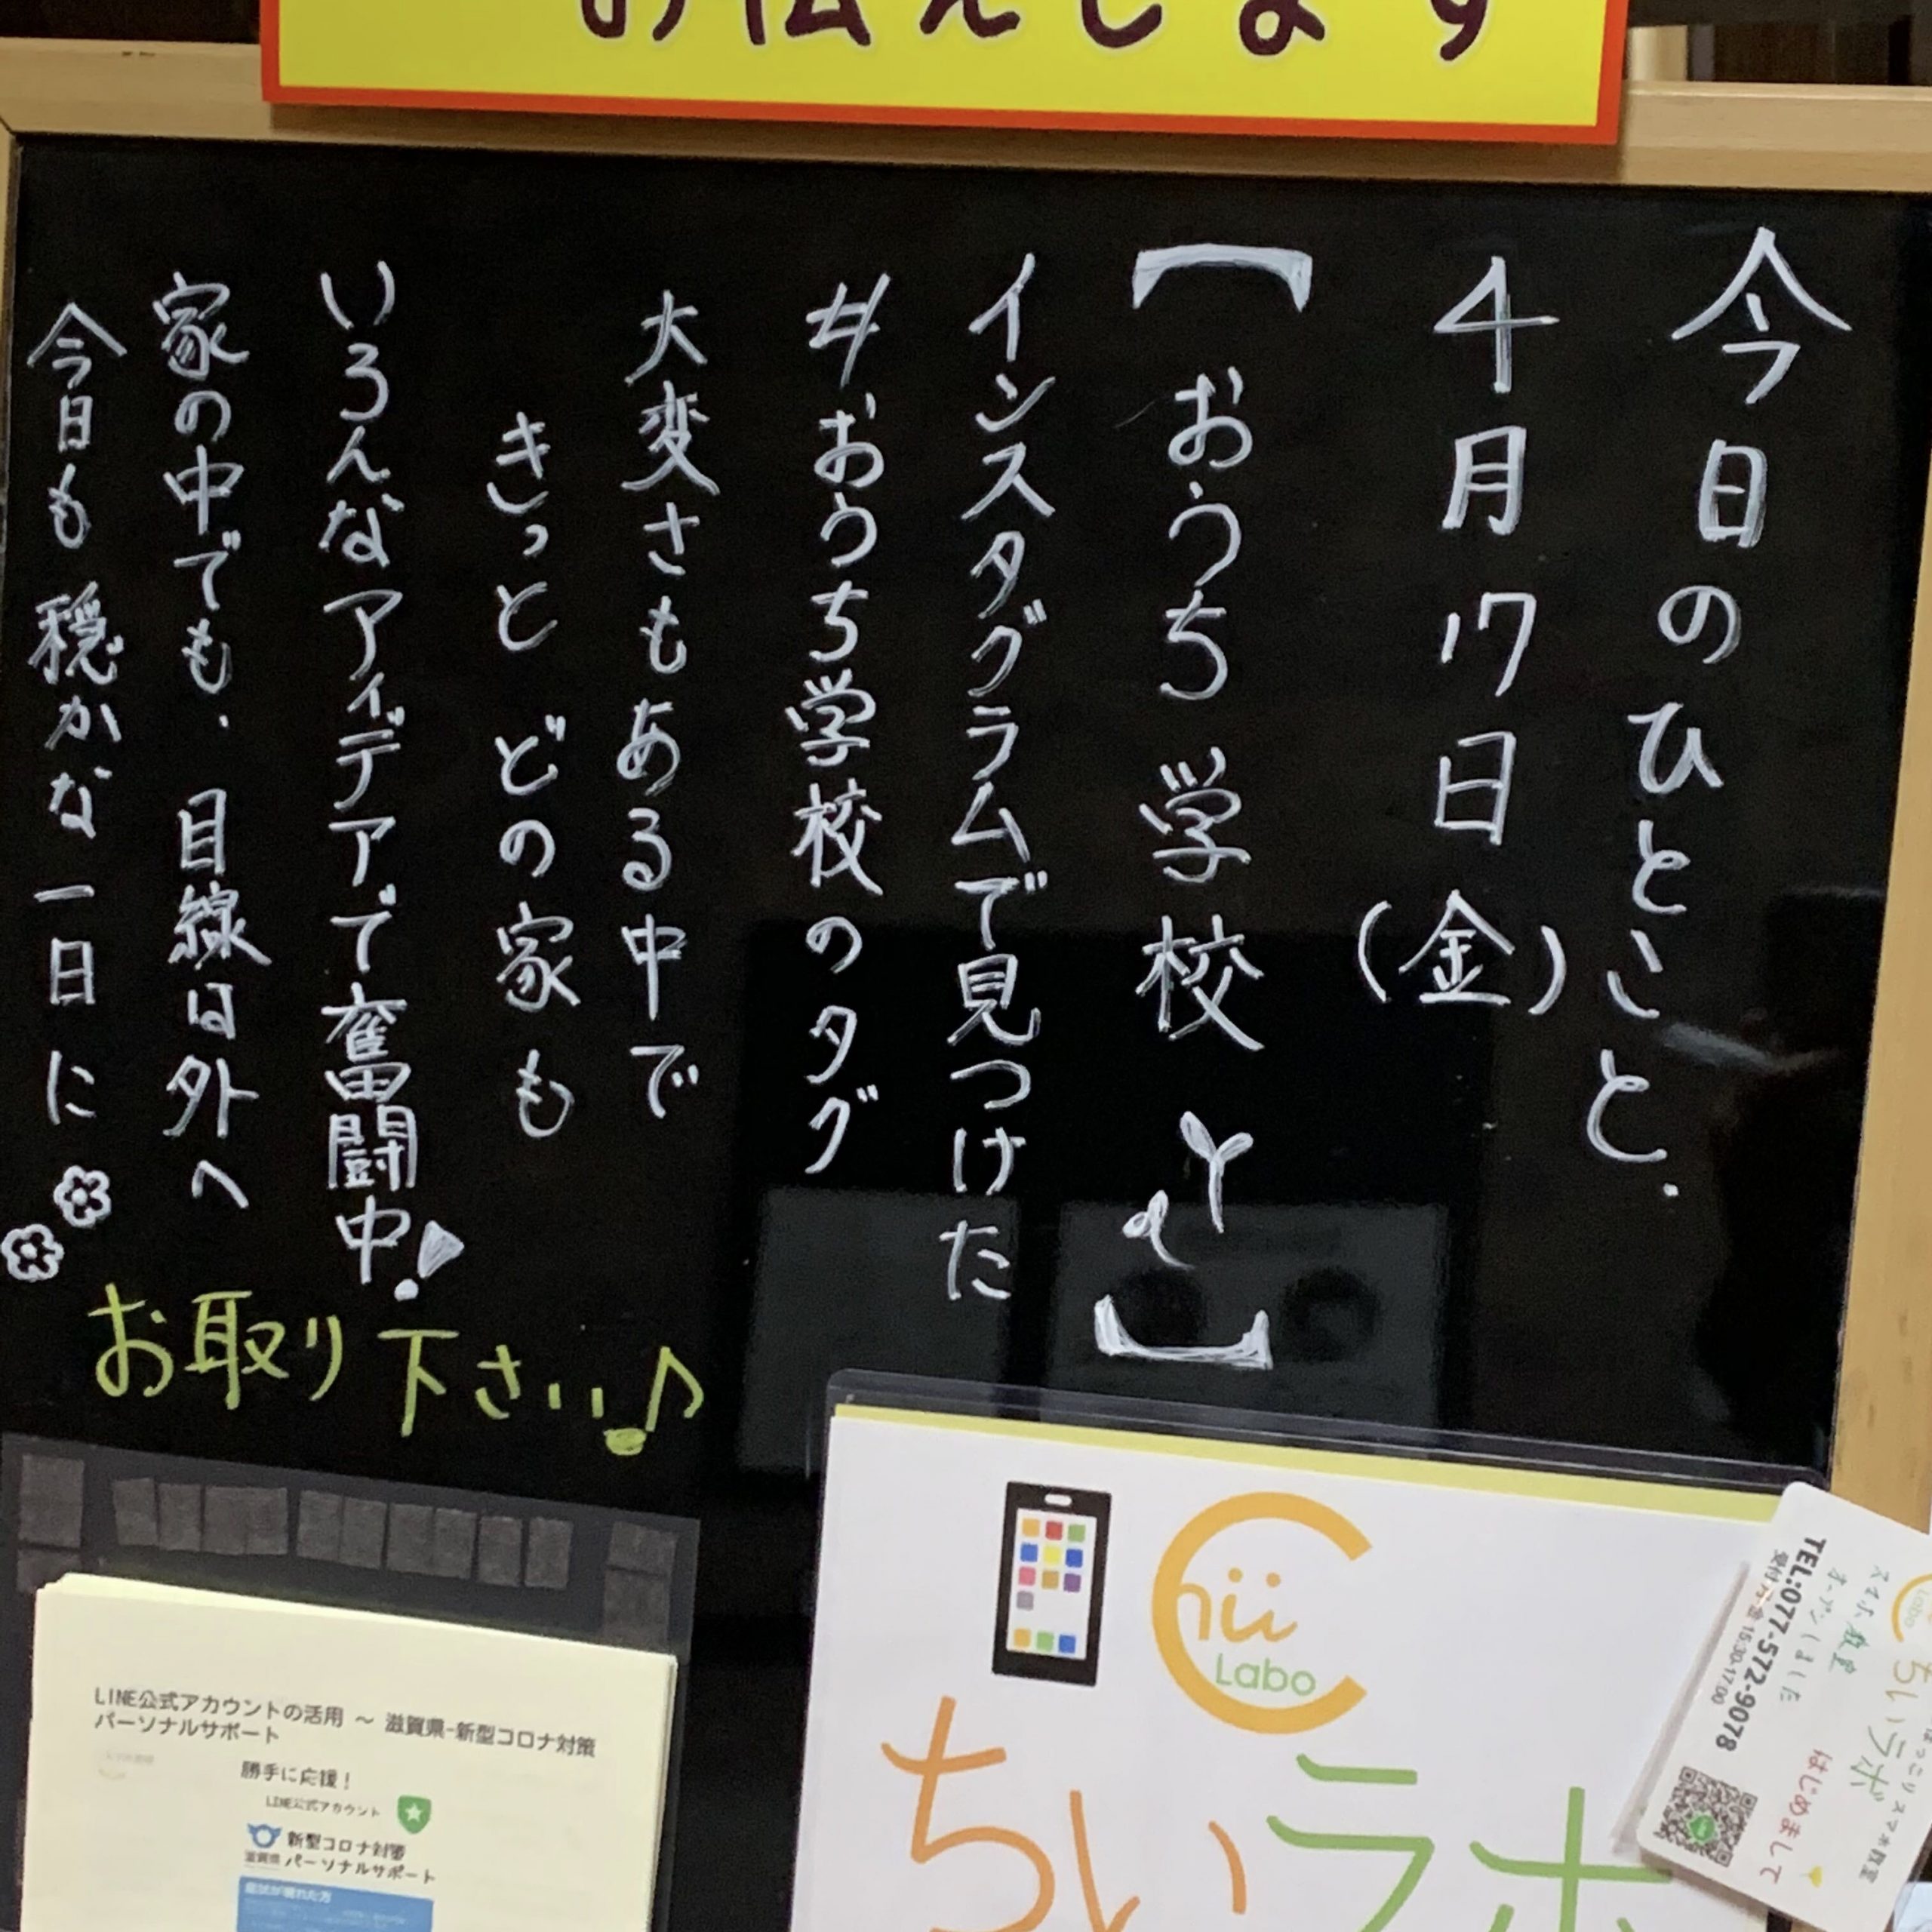 お伝えします
今日のひとこと.
4月17日(金)
【おうち学校】
インスタグラムで見つけた
#おうち学校のタグ
大変さもある中で
きっと どの家も
いろんなアィデアで奮闘中!
家の中でも. 目線は外へ
今日も 穏かな一日に
お取り下さい♪
LINE公式アカウントの活用 ～ 滋賀県-新型コロナ対策
パーソナルサポート
勝手に応援!
LINE公式アカウント
新型コロナ対策
滋賀県 パーソナルサポート
症状が現れた方
Chii
Labo
ちいラボ
Labo
ちいラボ
スマホ教室
オープンしました
TEL:077-572-9078
15:30-17:00
はじめまして